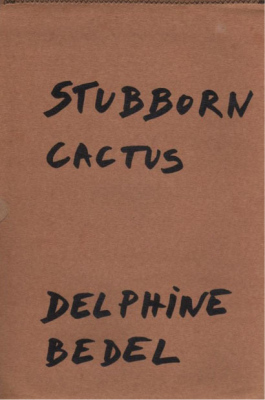 STUBBORN
CACTUS
DELPHiNE
BEDEL